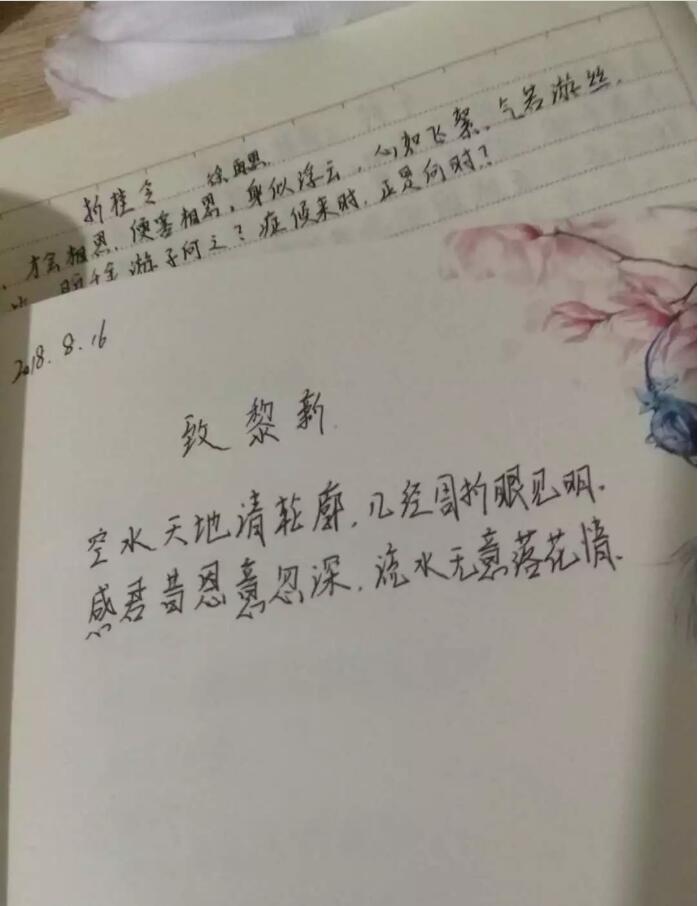 折桂令 徐再思
才会相思,便害相思,身似浮云,心如飞絮,气若游丝.
千金游子何之?症候来时,正是何时?
2018.8.16
致黎新
空水天地清轮廓,几经周折眼见明.
感君昔恩意忽深,流水无意落花情.